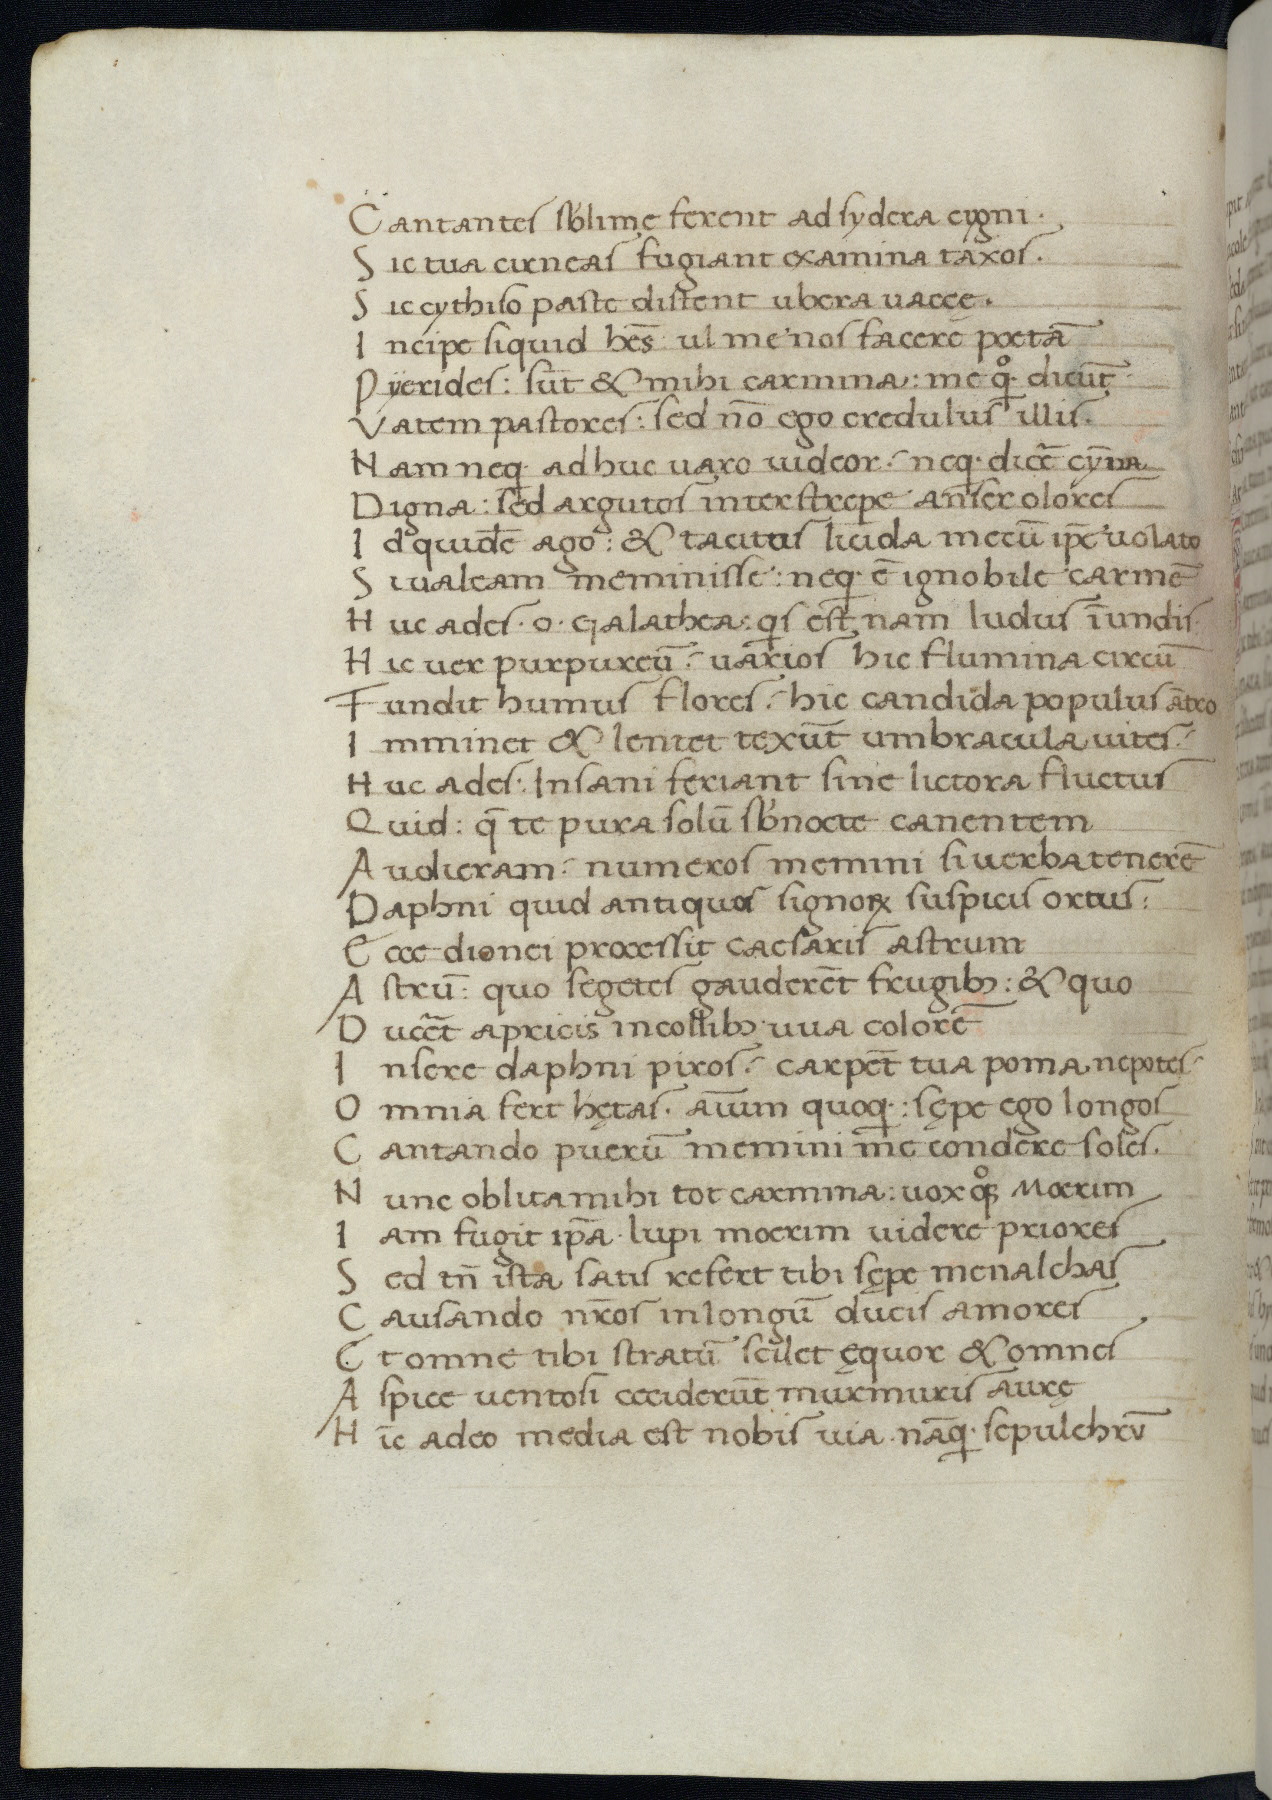 Cantantes sb̄lime ferent ad sydera cigni·
Sic tua cirneas fugiant examina taxos.
Sic cythiso paste distent ubera uacce.
Incipe siquid hēs ul me nos facerē poetā
Pyerides: sūt & mihi carmina: me q̊q· dicūt
Vatem pastores: sed nō ego credulus illis.
Nam neq· adhuc uaro uideor· neq· dicē cyn̄a
Digna: sed argutos inter strepe anser olores
Id quidē ago: & tacitus licida mecū ip̄e uolato
Si ualeam meminisse: neq· ē ignobile carmē
Huc ades· o· galathea: q̄s est nam ludus ī undis·
Hic uer purpureū· uarios hic flumina circū
Fundit humus flores· hic candida populus ātro
Imminet & lentet texūt umbracula uites·
Huc ades· Insani feriant sine lictora fluctus
Quid: q̄ te pura solū sb̄ nocte canentem
Audieram· numeros memini si uerba tenerē
Daphni quid antiquos signoꝝ suspicis ortus:
Ecce dionei processit caesaris astrum
Astrū: quo segetes gauderēt frugibꝫ: & quo
Ducēt apricis in collibꝫ uua colorē
Insere daphni piros· carpēt tua poma nepotes·
Omnia fert hętas· aīum quoq·: sępe ego longos
Cantando puerū memini me condere soles.
Nunc oblita mihi tot carmina: uox q̊q Moerim
Iam fugit ip̄a· lupi moerim uidere priores
Sed tn̄ ista satis refert tibi sępe menalchas
Causando nr̄os in longū ducis amores
Et omne tibi stratū silet ęquor & omnes
Aspice uentosi ceciderūt murmuris aurę
Hīc adeo media est nobis uia· nāq· sepulchrū